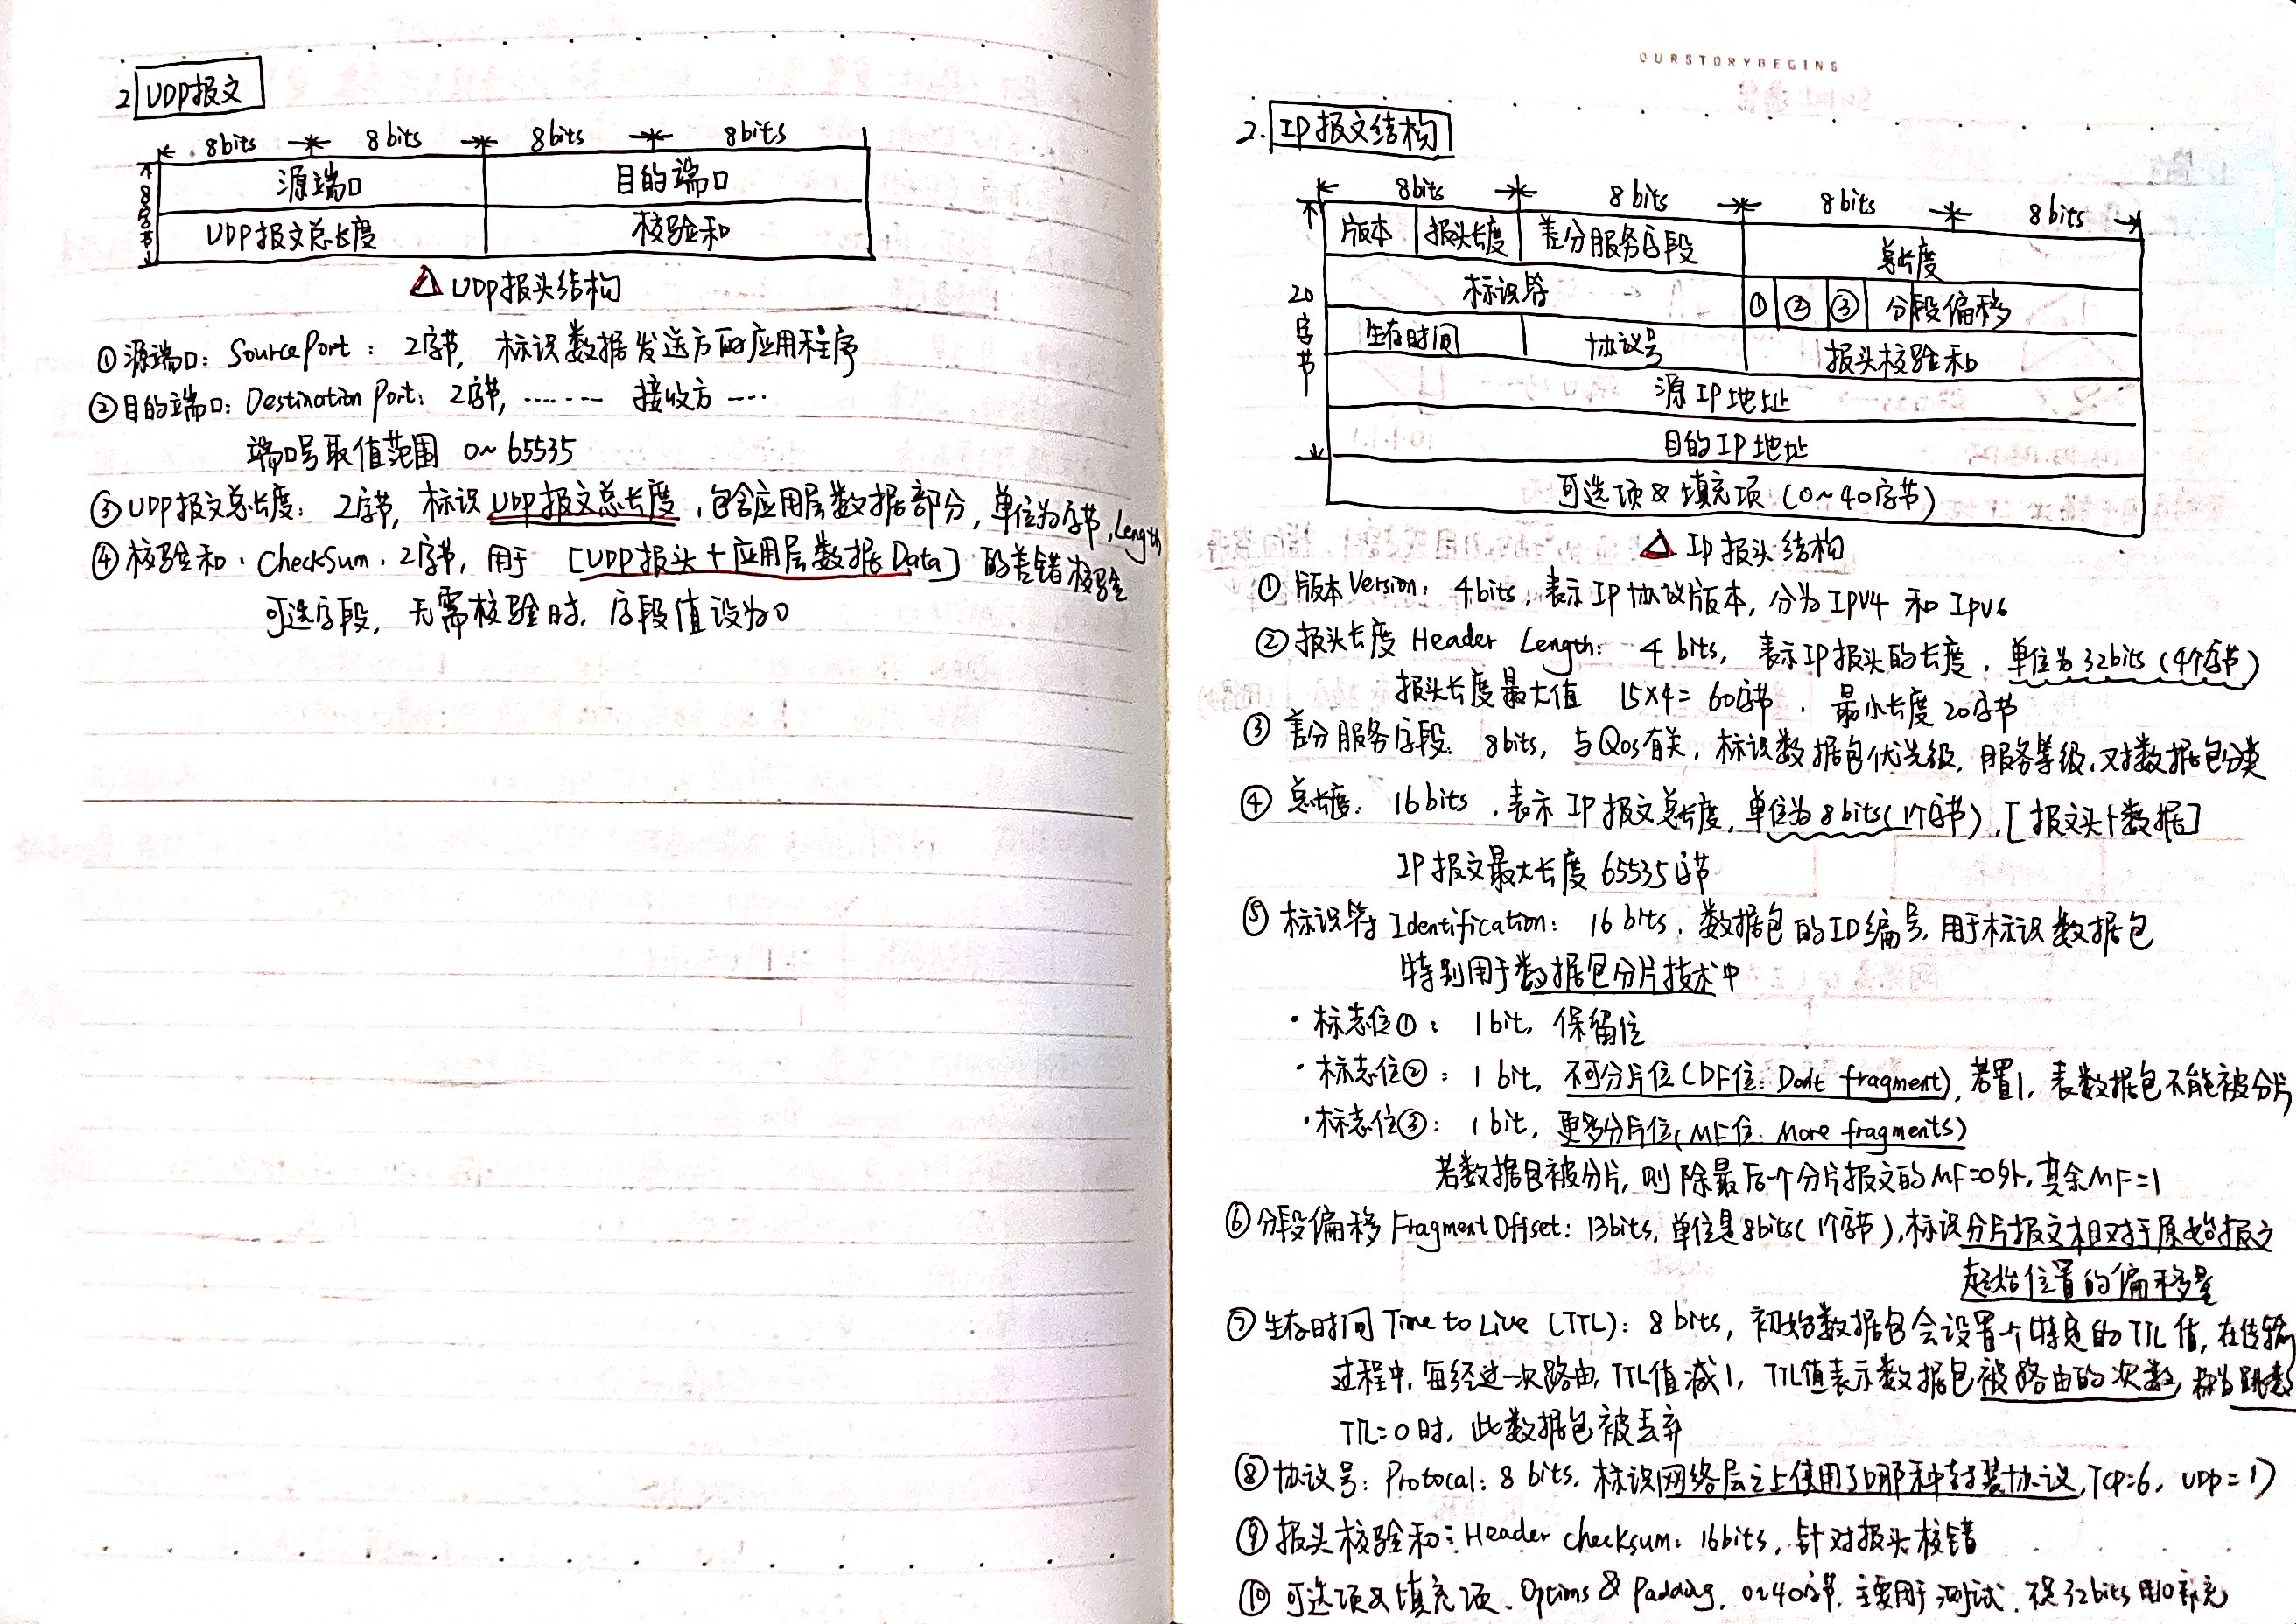 2 UDP报文
8bits 8bits 8bits 8bits
8字节
源端口 目的端口
UDP报文总长度 校验和
UDP报头结构
①源端口: Source Port: 2字节, 标识数据发送方的应用程序
②目的端口: Destination Port: 2字节, ....... 接收方 ....
端口号取值范围 0~65535
③UDP报文总长度: 2字节, 标识UDP报文总长度, 包含应用层数据部分, 单位为字节, Length
④校验和. CheckSum. 2字节, 用于 [UDP报头+应用层数据Data] 的差错校验
可选字段, 无需校验时, 字段值设为0
OURSTORYBEGINS
2. IP报文结构
8bits 8bits 8bits 8bits
20字节
版本 报头长度 差分服务字段 总长度
标识符 ① ② ③ 分段偏移
生存时间 协议号 报头校验和
源IP地址
目的IP地址
可选项&填充项 (0~40字节)
IP报头结构
①版本Version: 4bits, 表示IP协议版本, 分为IPV4 和 IPV6
②报头长度 Header Length: 4 bits, 表示IP报头的长度, 单位为32bits (4个字节)
报头长度最大值 15×4=60字节, 最小长度20字节
③差分服务字段: 8bits, 与Qos有关, 标识数据包优先级, 服务等级, 对数据包分类
④总长度: 16bits, 表示IP报文总长度, 单位为8bits(1个字节), [报文头+数据]
IP报文最大长度65535字节
⑤标识符 Identification: 16 bits, 数据包的ID编号, 用于标识数据包
特别用于数据包分片技术中
·标志位①: 1bit, 保留位
·标志位②: 1 bit, 不可分片位(DF位: Don't fragment), 若置1, 表数据包不能被分片
·标志位③: 1bit, 更多分片位(MF位: More fragments)
若数据包被分片, 则除最后一个分片报文的MF=0外, 其余MF=1
⑥分段偏移 Fragment Offset: 13bits, 单位是8bits(1个字节), 标识分片报文相对于原始报文
起始位置的偏移量
⑦生存时间 Time to Live (TTL): 8 bits, 初始数据包会设置一个特定的TTL值, 在传输
过程中, 每经过一次路由, TTL值减1, TTL值表示数据包被路由的次数, 称为跳数
TTL=0时, 此数据包被丢弃
⑧协议号: Protocal: 8 bits, 标识网络层之上使用了哪种封装协议, TCP=6, UDP=17
⑨报头校验和: Header checksum: 16bits, 针对报头校错
⑩可选项&填充项. Options & Padding. 0~40字节. 主要用于测试. 32bits 用0补充